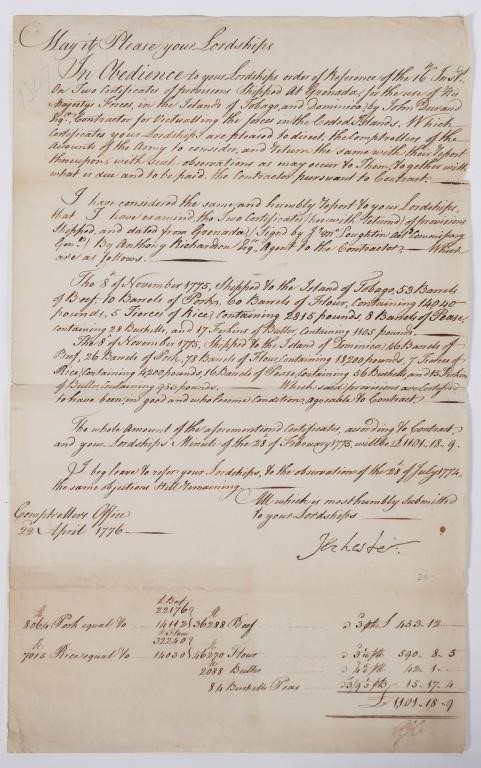 May it Please your Lordships
In Obedience to your Lordships order of Reference of the 16th Inst.
On Two Certificates of provisions Shipped At Grenada, for the use of His
Majestys Forces, in the Islands of Tobago, and Dominica, by John Durand
Esq. Contractor for Victualling the forces in the Ceded Islands. Which
Certificates your Lordships are pleased to direct, the Comptrollers of the
Accounts of the Army to consider, and return the same with their report
thereupon, with such observations as may occur to Them, together with
what is due and to be paid the Contractor pursuant to Contract.
I have considered the same, and humbly report to your Lordships,
that I have examined, the Two Certificates (herewith returned) of provisions
Shipped, and dated from Grenada, Signed by Loughlin Commissary
Genl. By Anthony Richardson Esq. Agent to the Contractor Which
are as follows.
The 8th of November 1775, Shipped to the Island of Tobago, 53 Barrels
of Beef, 10 Barrels of Pork, 60 Barrels of Flour, containing 14,040
pounds, 5 Tierces of Rice, containing 2815 pounds, 8 Barrels of Pease,
containing 28 Bushells, and 17 Firkins of Butter, Containing 1105 pounds.
The 8th of November 1775, Shipped to the Island of Dominica, 46 Barrels of
Beef, 26 Barrels of Pork, 78 Barrels of Flour, Containing 18200 pounds, 7 Tierces of
Rice, Containing 4200 pounds, 16 Barrels of Pease, Containing 56 Bushells, and 15 Firkins
of Butter, Containing 983 pounds. Which said provisions are Certified
to have been, in good and wholesome Condition, agreeable to Contract.
The whole Amount of the aforementioned Certificates, according to Contract
and your Lordships Minute of the 28 of February 1775, will be £1101.18-9.
I beg leave to refer your Lordships, to the observation of the 28th of July 1774,
the same objections still remaining.
All which is most humbly Submitted
to your Lordships
Comptrollers Office
22 April 1776
lb Beef
22176
8064 Pork equal to 14112 36288 Beef 3 453-12
lb Flour
32240
7015 Rice equal to 14030 46270 Flour 540-8-5
2088 Butter 42-1-
84 Bushells Peas 3/9 15-17-4
£1,101-18-9